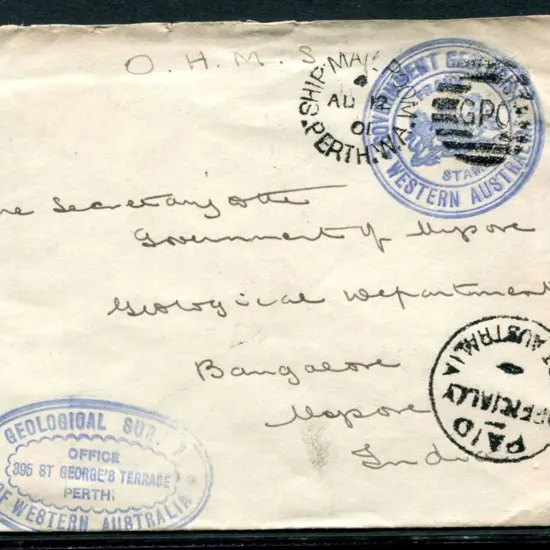 O.H.M.S
SHIP MAIL ROOM
AU 12
01
PERTH. W.A.
GPO
GOVERNMENT GEOLOGIST
FRANK
STAMP
WESTERN AUSTRALIA
he Secretary to the
Government of Mysore
Geological Department
Bangalore
Mysore
India
PAID
OFFICIALLY
AUSTRALIA
GEOLOGICAL SUR
OFFICE
395 ST GEORGE'S TERRACE
PERTH
OF WESTERN AUSTRALIA